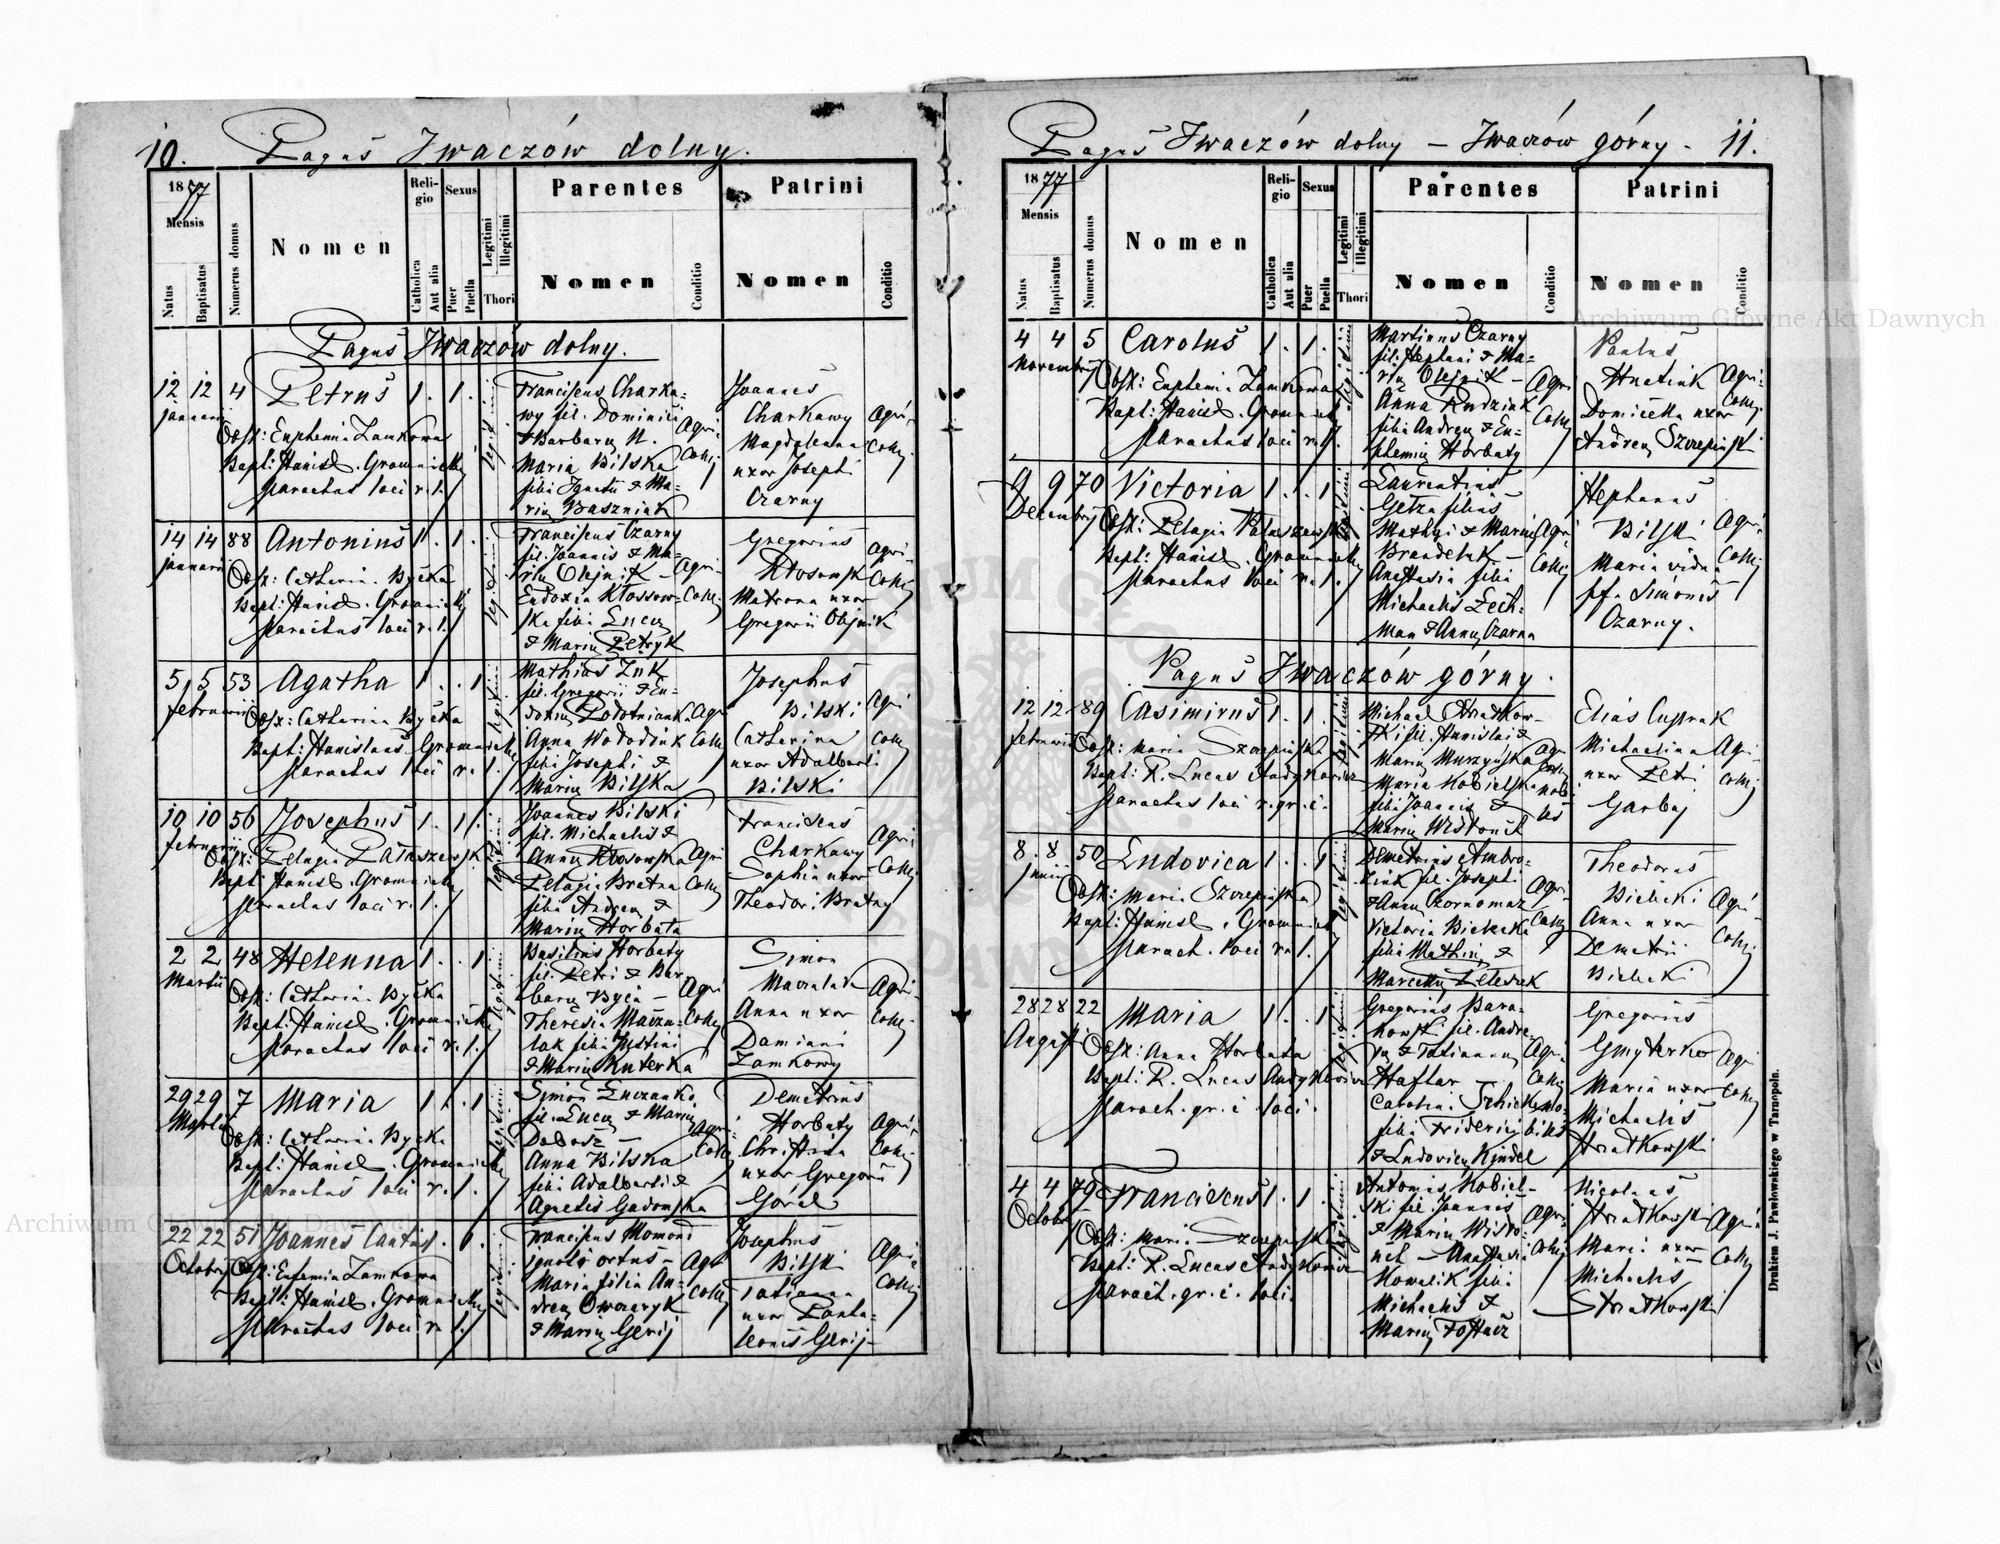 10. Pagus Iwaczów dolny.
1877
Mensis
Natus
Baptisatus
Numerus domus
Nomen
Religio
Catholica
Aut alia
Sexus
Puer
Puella
Legitimi
Illegitimi
Thori
Parentes
Nomen
Conditio
Patrini
Nomen
Conditio
Pagus Iwaczów dolny.
12 12 4 Petrus 1. 1.
Januarii
Obst: Euphemia Zamkowa
Bapt: Stanisl. Gromnicki
parochus loci r. l.
Franciscus Charka-
wy fil. Dominici
& Barbara N.
Maria Bilska
filia Ignatii & Ma-
ria Baszniak
Agri-
colæ
Joannes
Charkawy
Magdalena
uxor Josephi
Czarny
Agri-
colæ
14 14 88 Antonius 1. 1.
Januarii
Obst: Catharin. Byčka
Bapt: Stanisl. Gromnicki
parochus loci r. l.
Franciscus Czarny
fil. Joannis & Ma-
riæ Olejnik –
Eudoxia Kłossow-
ska filia Lucæ
& Mariæ Petryk
Agri-
colæ
Gregorius
Kłosowsk
Matrona uxor
Gregorii Olejnik
Agri-
colæ
5 5 53 Agatha 1. . 1
Februarii
Obst: Catharina Byčka
Bapt: Stanislaus Gromnicki
parochus loci r. l.
Mathias Zuk
fil. Gregorii & Eu-
doxiæ Połotniank
Anna Wołodźuk
filia Josephi &
Mariæ Bilska
Agri
colæ
Josephus
Bilski
Catharina
uxor Adalberti
Bilski
Agri
colæ
10 10 56 Josephus 1. 1.
Februarii
Obst: Pelagia Pałaszewsk
Bapt: Stanisl. Gromnicki
parochus loci r. l.
Joannes Bilski
fil. Michaelis &
Annæ Kłosowska
Pelagia Bratna
filia Andreæ &
Mariæ Horbata
Agri
colæ
Franciscus
Charkawy
Sophia uxor
Theodori Bratny
Agri
colæ
2 2 48 Helenna 1. . 1.
Martii
Obst: Catharin. Byčka
Bapt: Stanisl. Gromnicki
parochus loci r. l.
Basilius Horbaty
fil. Petri & Bar
baræ Byča –
Theresia Maczu-
lak filia Justini
& Mariæ Kuterka
Agri
colæ
Simon
Anna uxor
Damiani
Zamkowy
Agri-
colæ
29 29 7 Maria 1. . 1
Martii
Obst: Catharin. Byčka
Bapt: Stanisl. Gromnicki
parochus loci r. l.
Simon Łuczanko
fil. Lucæ & Mariæ
Dobosz –
Anna Bilska
filia Adalberti &
Agnetis Gadomska
Agri-
colæ
Demetrius
Horbaty
Christina
uxor Gregorii
Góral
Agri-
colæ
22 22 51 Joannes Cantius . 1.
Octobris
Obst: Eufemia Zamkowa
Bapt: Stanisl. Gromnicki
parochus loci r. l.
Franciscus Momond
ignoto ortus –
Maria filia An-
dreæ Owczaryk
& Mariæ Gerij
Agri
colæ
Josephus
Bilski
Tatianna
uxor Panta-
leonis Gerij –
Agri-
colæ
Pagus Iwaczów dolny – Iwaczów górny – 11.
1877
Mensis
Natus
Baptisatus
Numerus domus
Nomen
Religio
Catholica
Aut alia
Sexus
Puer
Puella
Legitimi
Illegitimi
Thori
Parentes
Nomen
Conditio
Patrini
Nomen
Conditio
4 4 5 Carolus 1. 1.
Novembris
Obst: Euphemia Zamkowa
Bapt: Stanisl. Gromnicki
parochus loci r. l.
Martinus Czarny
fil. Stephani & Ma-
riæ Olejnik –
Anna Rudziak
filia Andreæ & Eu-
phemiæ Horbaty
Agri
colæ
Paulus
Hnatiuk
Domicella uxor
Andreæ Szczepinski
Agri-
colæ
9 9 70 Victoria 1. . 1
Decembris
Obst: Pelagia Pałaszewsk
Bapt: Stanisl. Gromnicki
parochus loci r. l.
Laurentius
Getza filius
Mathæi & Mariæ
Brandeluk –
Anastasia filia
Michaelis Lech-
man & Annæ Czarna
Agri
colæ
Stephanus
Bilski
Maria vidua
p. f. Simonis
Czarny.
Agri
colæ
Pagus Iwaczów górny.
12 12 89 Casimirus 1. 1.
Februarii
Obst: Maria Szczepinska
Bapt: R. Lucas
parochus loci r. gr. c.
Michael Stratkow-
ski fil. Stanislai &
Mariæ Murzyńska
Maria Kobielska
filia Joannis &
Elias Cuprak
Michaelina
uxor Petri
Garbaj
Agri-
colæ
8 8 50 Ludovica 1. . 1
Junii
Obst: Maria Szczepinska
Bapt: Stanisl. Gromnicki
paroch. loci r. l.
Demetrius Ambro-
ziuk fil. Josephi
& Annæ Czornomaz
Victoria Bielecka
filia Mathiæ &
Marcellæ Peleszek
Agri-
colæ
Theodorus
Bielecki
Anna uxor
Demetrii
Bielecki
Agri-
colæ
28 28 22 Maria 1. . 1
Augusti
Obst: Anna Horbata
Bapt: R. Lucas
paroch. gr. c. loci.
Gregorius Bara-
nowski fil. Andre-
æ & Tatiannæ
Haftar –
filia Friderici
& Ludovicæ Kindel
Agri-
colæ
Gregorius
Gmyterko
Maria uxor
Michaelis
Stratkowski
Agri
colæ
4 4 79 Franciscus 1. 1.
Octobris
Obst: Mari. Szczepinska
Bapt: R. Lucas
paroch. gr. c. loci.
Antonius Kobiel-
ski fil. Joannis
& Mariæ Wisto-
uch – Anastasia
Kowalik filia
Michaelis &
Mariæ Tokacz
Agri-
colæ
Nicolaus
Stratkowski
Mari. uxor
Michaelis
Stratkowski
Agri-
colæ
Drukiem J. Pawłowskiego w Tarnopolu.
Archiwum Główne Akt Dawnych
Archiwum Główne Akt Dawnych